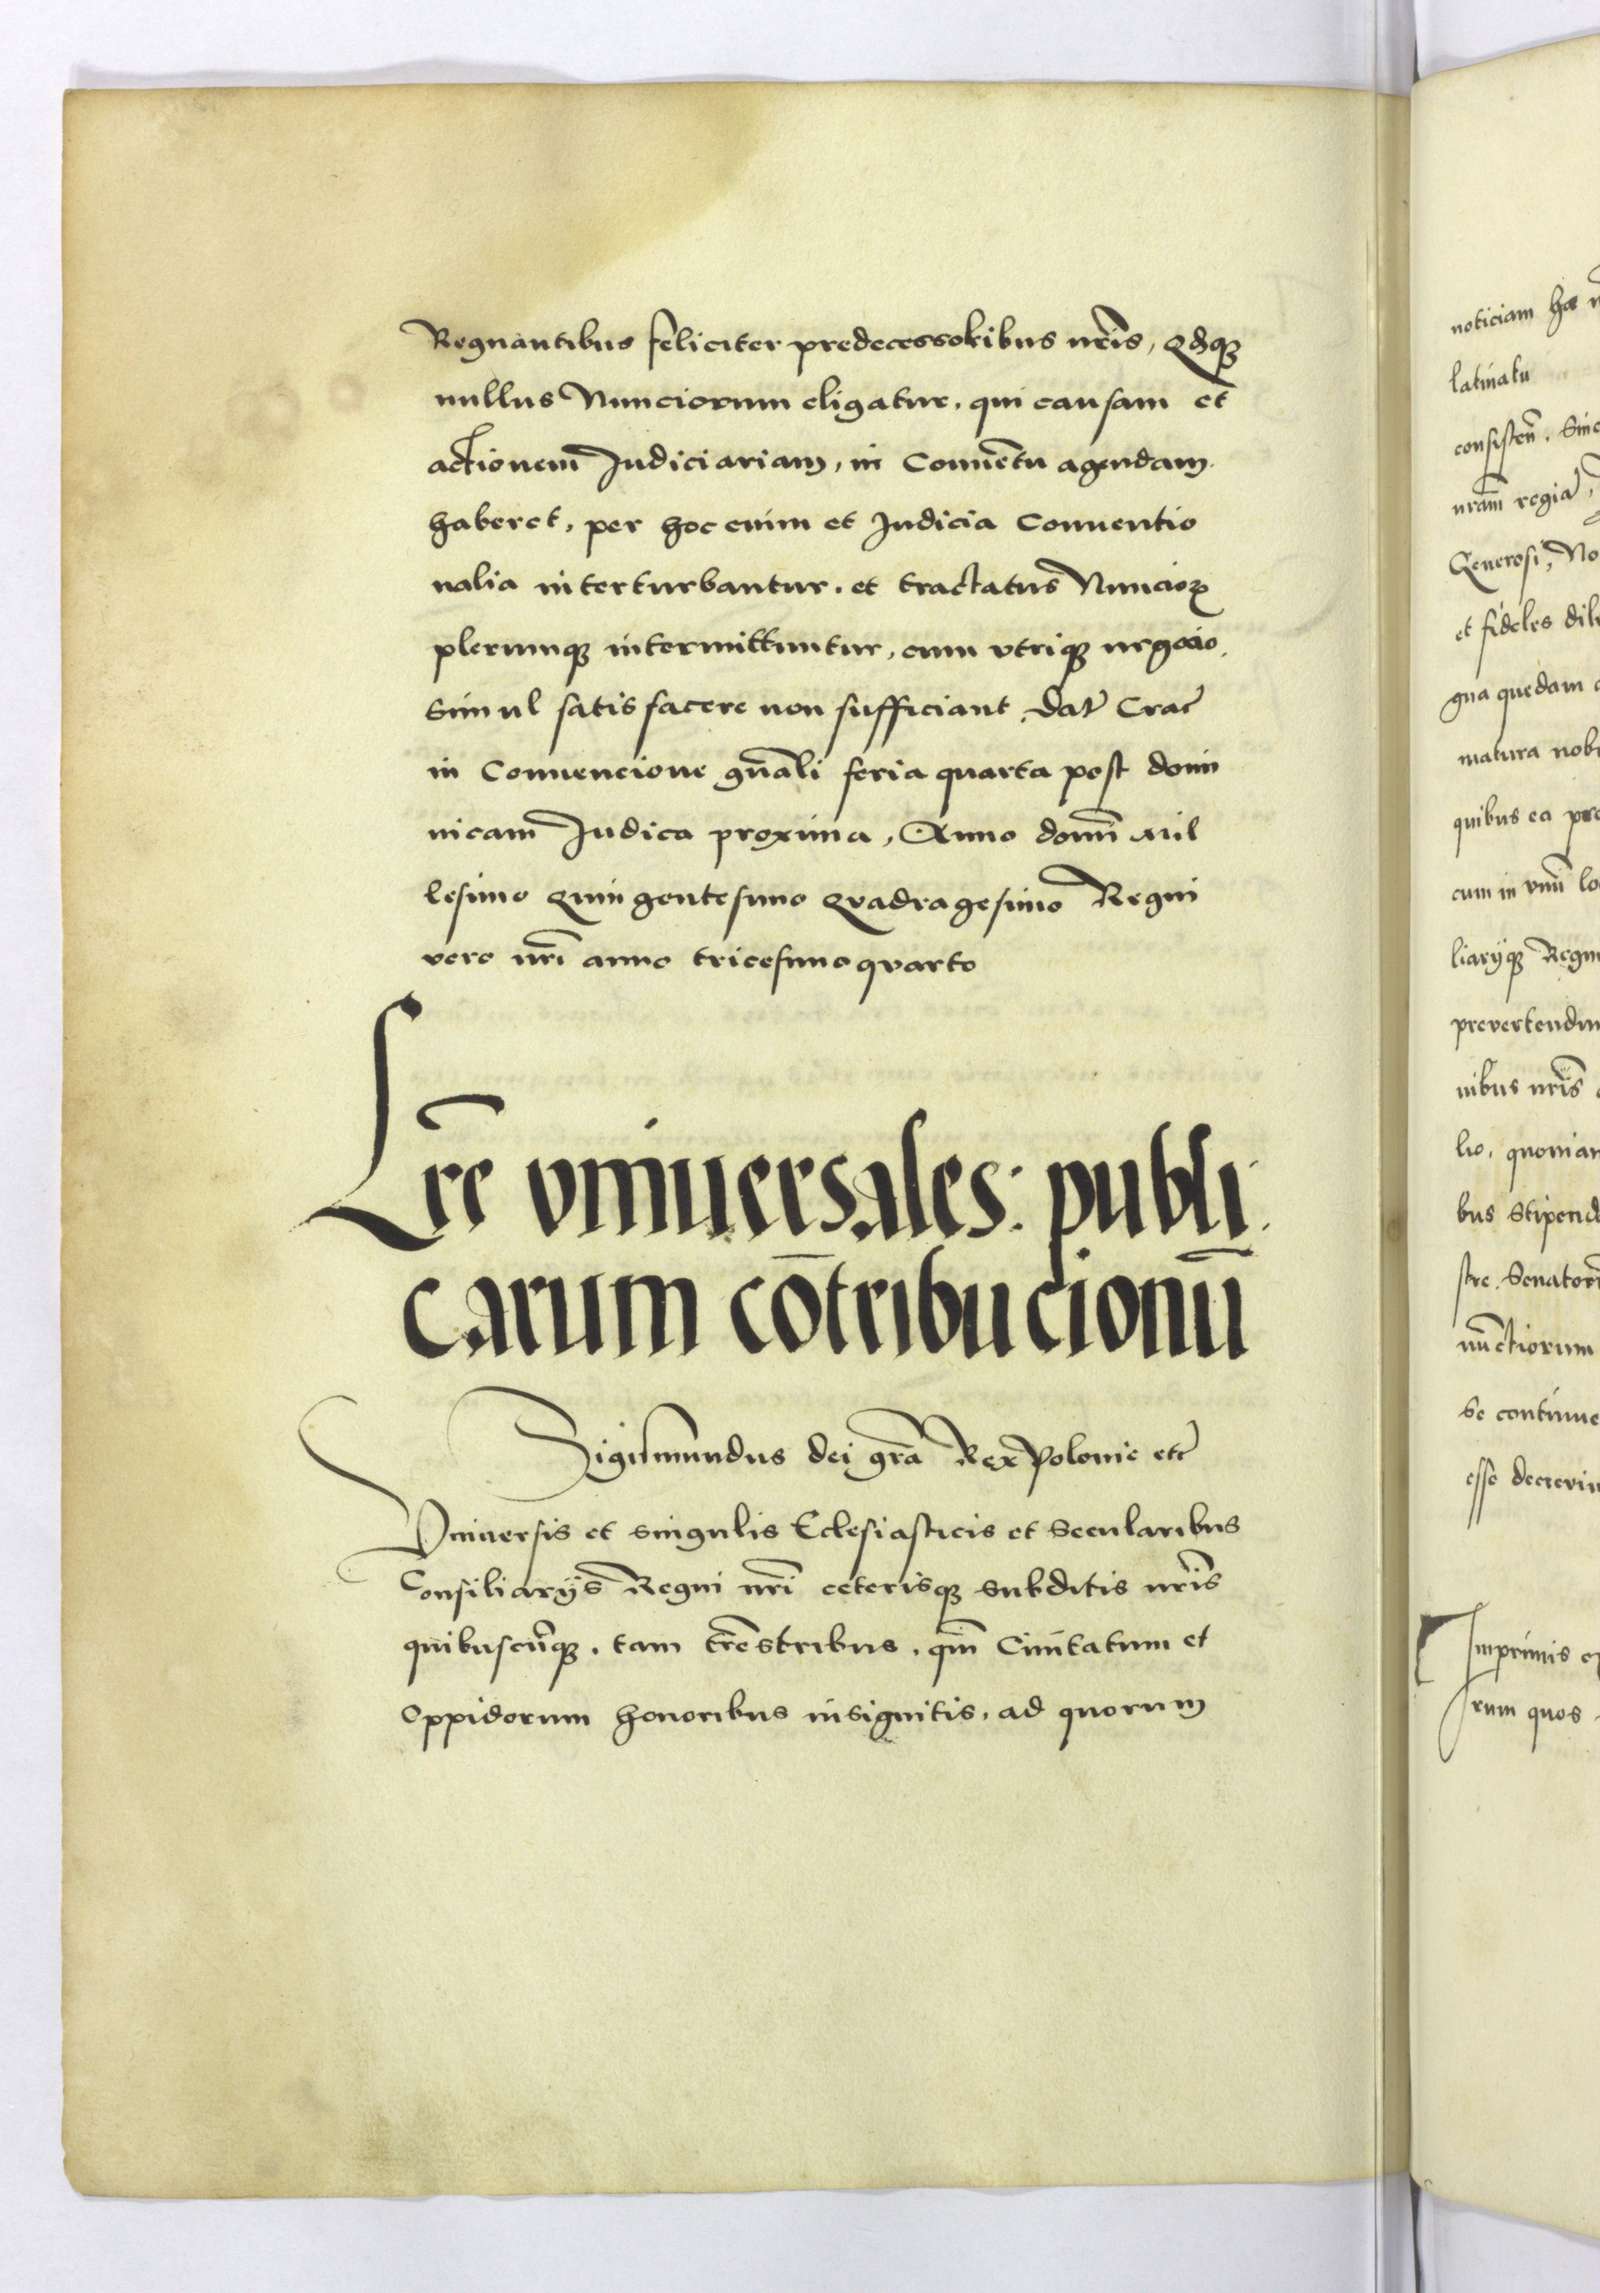 Regnantibus feliciter predecessoribus nr̃is, Qđq3
nullus Nunciorum eligatur. qui causam et
actionem Iudiciariam, in Conuẽtu agendam
haberet, per hoc enim et Iudicia Conuentio
nalia interturbantur. et tractatus Nuncioꝝ
plerumq3 intermittuntur, cum vtriq3 negocio
simul satis facere non sufficiant. Dat̃ Crac̃
in Conuencione gñali feria quarta post domi
nicam Iudica proxima, Anno domĩ Mil
lesimo Quingentesimo Quadragesimo Regni
vero nr̃i anno tricesimo quarto
Lr̃e vniuersales: publi
carum cõtribucionũ
Sigismundus dei gr̃a Rex Polonie etc̃
Vniuersis et singulis Eclesiasticis et Secularibus
Consiliarijs Regni nr̃i ceterisq3 subditis nr̃is
quibuscũq3. tam tr̃estribus. qm̃ Ciuitatum et
Oppidorum honoribus insignitis. ad quorum
noticiam
latinatu
consisteñ. Sinc
nram̃ regia
Generosi, No
et fideles dil
gna quedam
matura nob
quibus ea pre
cum in vnũ lo
liarijq3 Regni
prevertendu
nibus nr̃is
lio. quoniam
bus Stipend
stre. Senatorũ
nũctiorum
se continue
esse decreui
Imprimis
rum quos